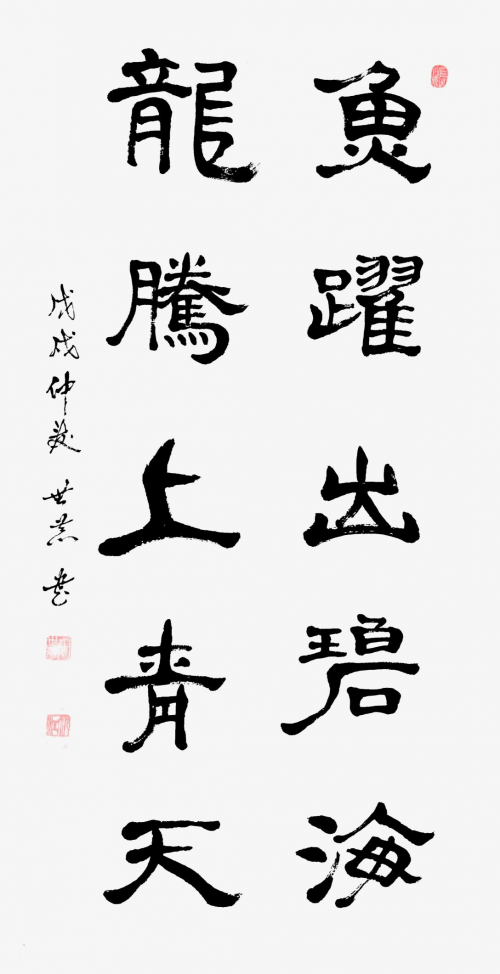 魚躍出碧海
龍騰上青天
戊戌仲夏 世 書